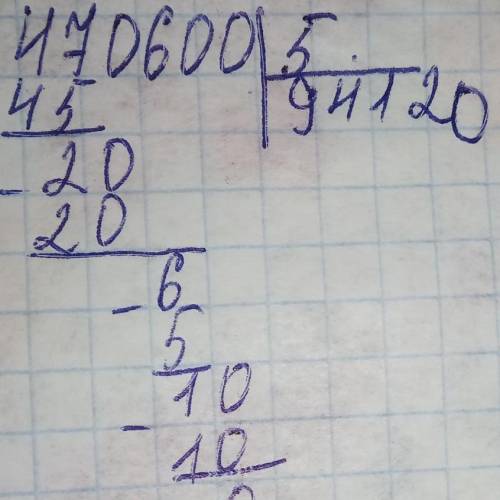 470600 5
45 94120
- 20
20
- 6
5
10
- 10
0